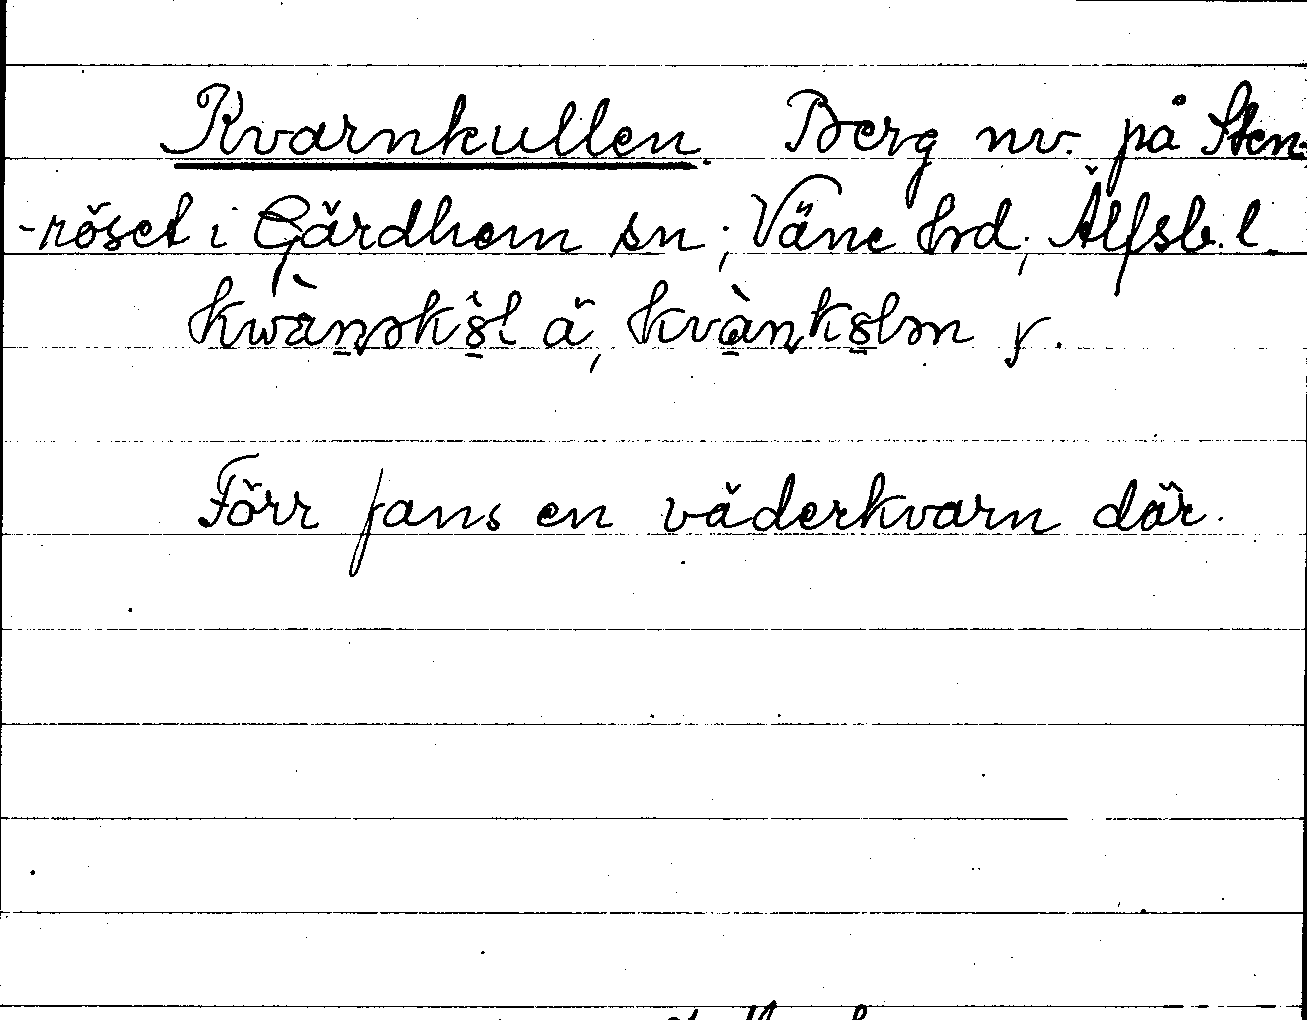 Kvarnkullen. Berg nv. på Sten-
-röset i Gärdhem sn; Väne hrd; Älfsb. l.
kwànəkö̀l ä, kvànkölən y.
Förr fans en väderkvarn där.